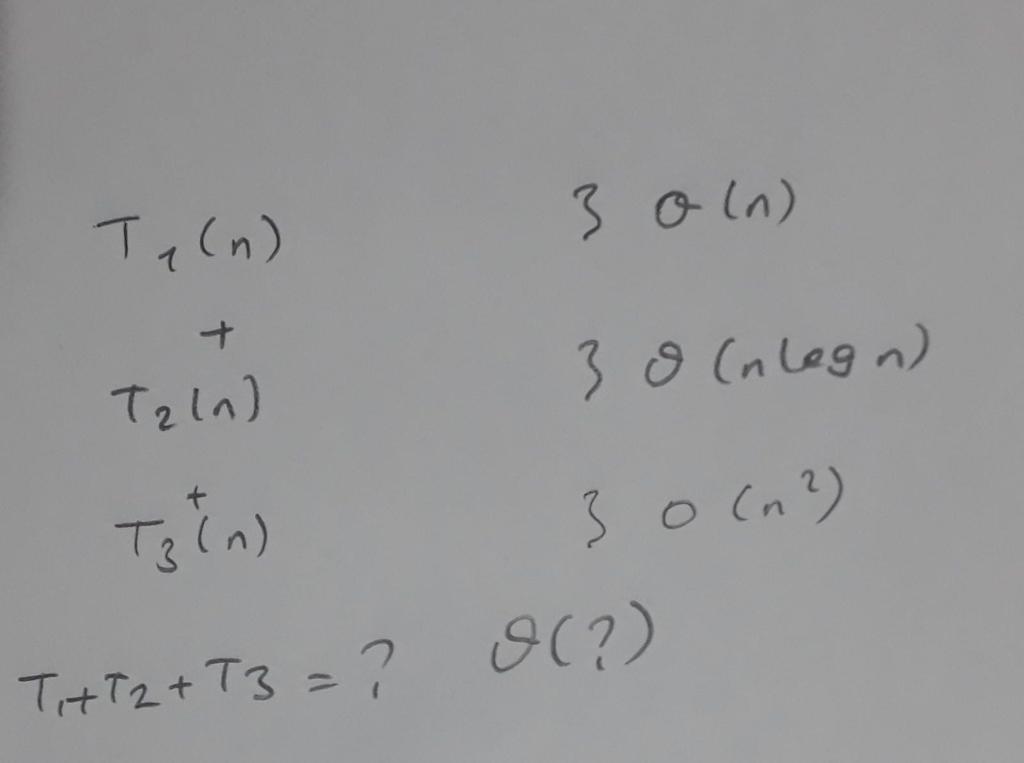 T1(n) } θ(n)
+
T2(n) } θ(n log n)
+
T3(n) } O(n²)
T1+T2+T3 = ? θ(?)